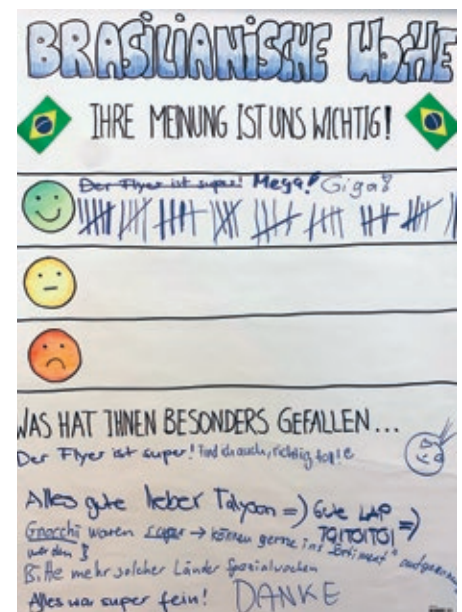 BRASILIANISCHE WOCHE
IHRE MEINUNG IST UNS WICHTIG!
Der Flyer ist super! Mega! Giga!
WAS HAT IHNEN BESONDERS GEFALLEN...
Der Flyer ist super! Find ich auch, richtig toll!
Alles gute lieber Talyson =) Gute LAP
TOITOITOI =)
Gnocchi waren super → können gerne ins "Sortiment" aufgenommen
werden!
Bitte mehr solcher Länder Spezialwochen
Alles war super fein! DANKE